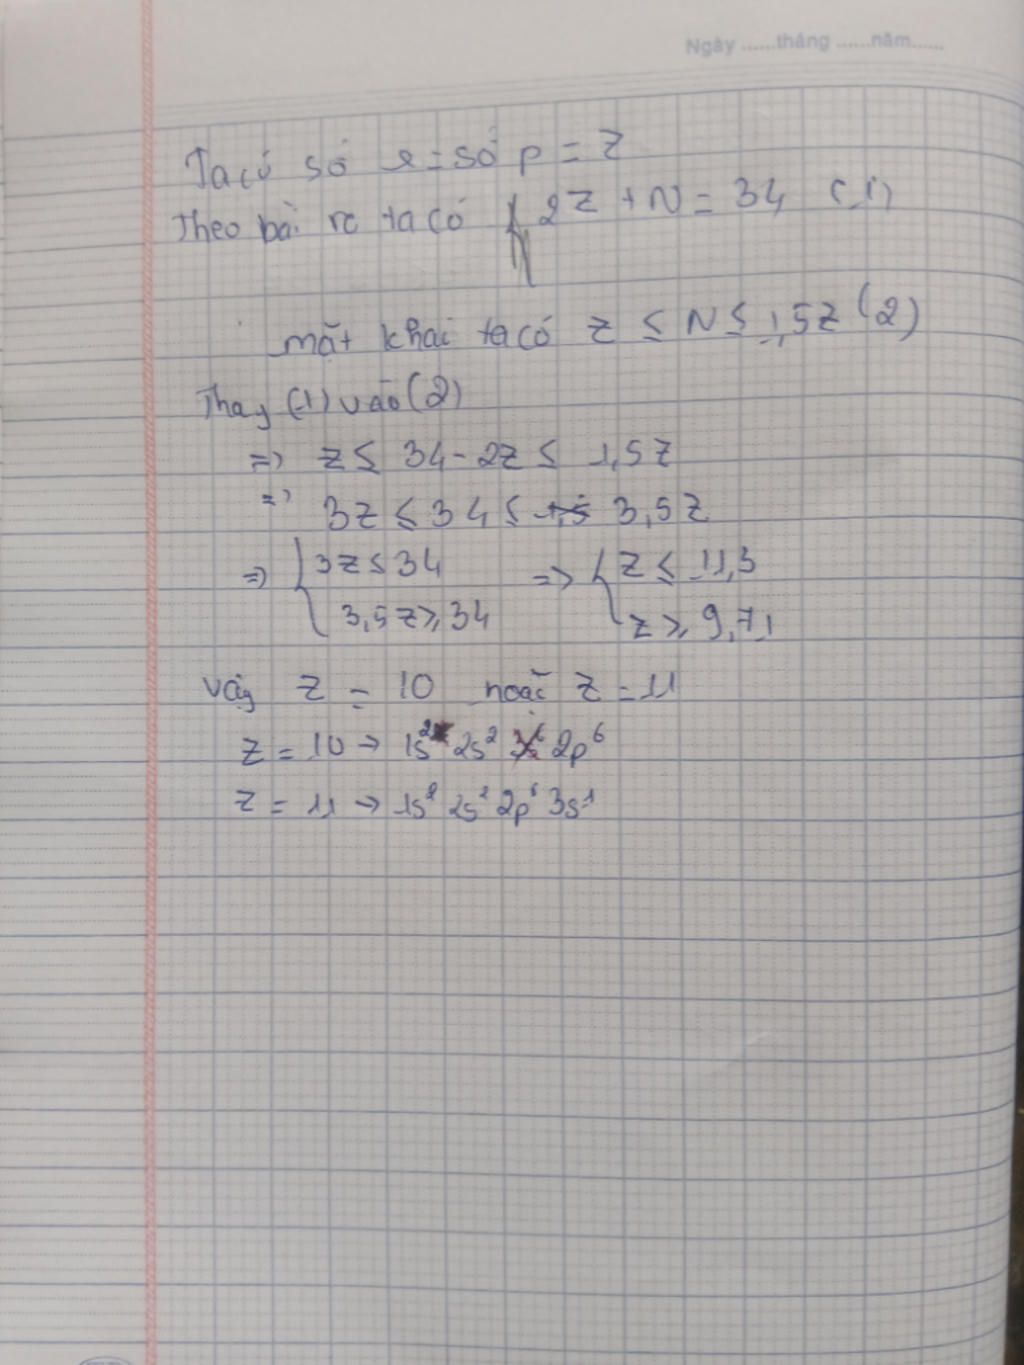 Ngày ......tháng ......năm......
Ta có số e = số p = Z
Theo bài ra ta có { 2Z + N = 34 (1)
mặt khác ta có Z ≤ N ≤ 1,5Z (2)
Thay (1) vào (2)
=> Z ≤ 34 - 2Z ≤ 1,5Z
=> 3Z ≤ 34 ≤ 3,5Z
=> { 3Z ≤ 34 => { Z ≤ 11,3
3,5Z ≥ 34 Z ≥ 9,71
Vậy Z = 10 hoặc Z = 11
Z = 10 → 1s² 2s² 2p⁶
Z = 11 → 1s² 2s² 2p⁶ 3s¹